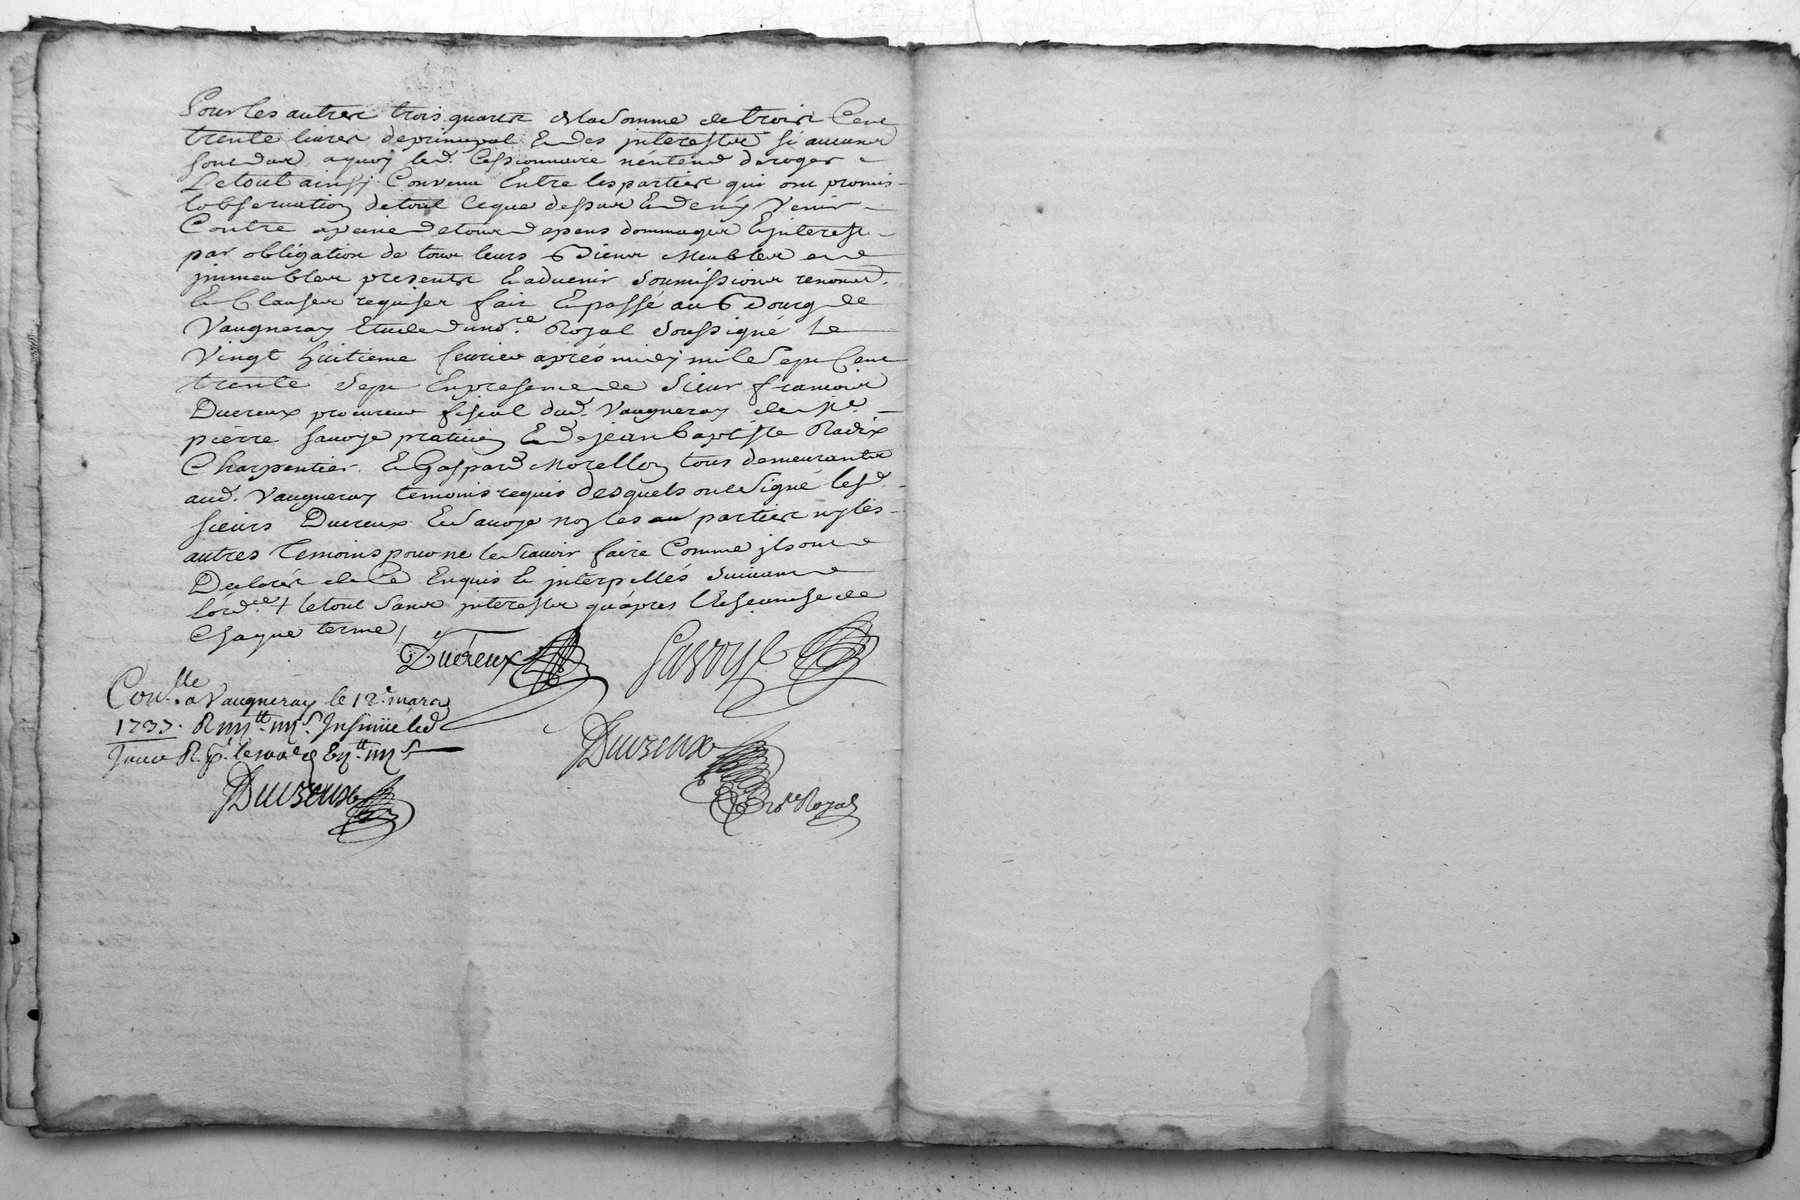 Pour les autres trois quarts de la somme de trois Cent
trente livres de principal Et des interestz si aucuns
sont dus, a quoy led. Cessionnaire n'entend deroger
Le tout ainsy Convenu Entre les parties qui ont promis
l'observation de tout Ceque dessus Et de ny Venir
Contre a peine de tous depens dommages Et interest
par obligation de tous leurs biens Meubles et
jmmeubles presents Et advenir Soumissions renond.
Et Clauses requises fait Et passé au bourg de
Vaugneray Etude dud no.re Royal soussigné Le
Vingt huitieme fevrier après midy mil Sept Cent
trente Sept En presence de Sieur francois
Ducreux procureur fiscal dud. Vaugneray de Me
pierre Savoye praticien Et de jean baptiste Radix
Charpentier Et Gaspard Morellon tous demeurants
aud. Vaugneray temoins requis desquels ont Signé lesd.
sieurs Ducreux Et Savoye non les parties ny les
autres temoins pour ne le Scavoir faire Comme jls ont
Declaré de Ce Enquis Et jnterpellés Suivant
l'ord.ce + le tout Sans jnterestz qu'après l'Echeance de
Chaque terme /
Ducreux Savoye
Con.lle a Vaugneray le 12e mars
1737. R Insinué led
jour R.
Ducreux
Ducreux
no.re Royal